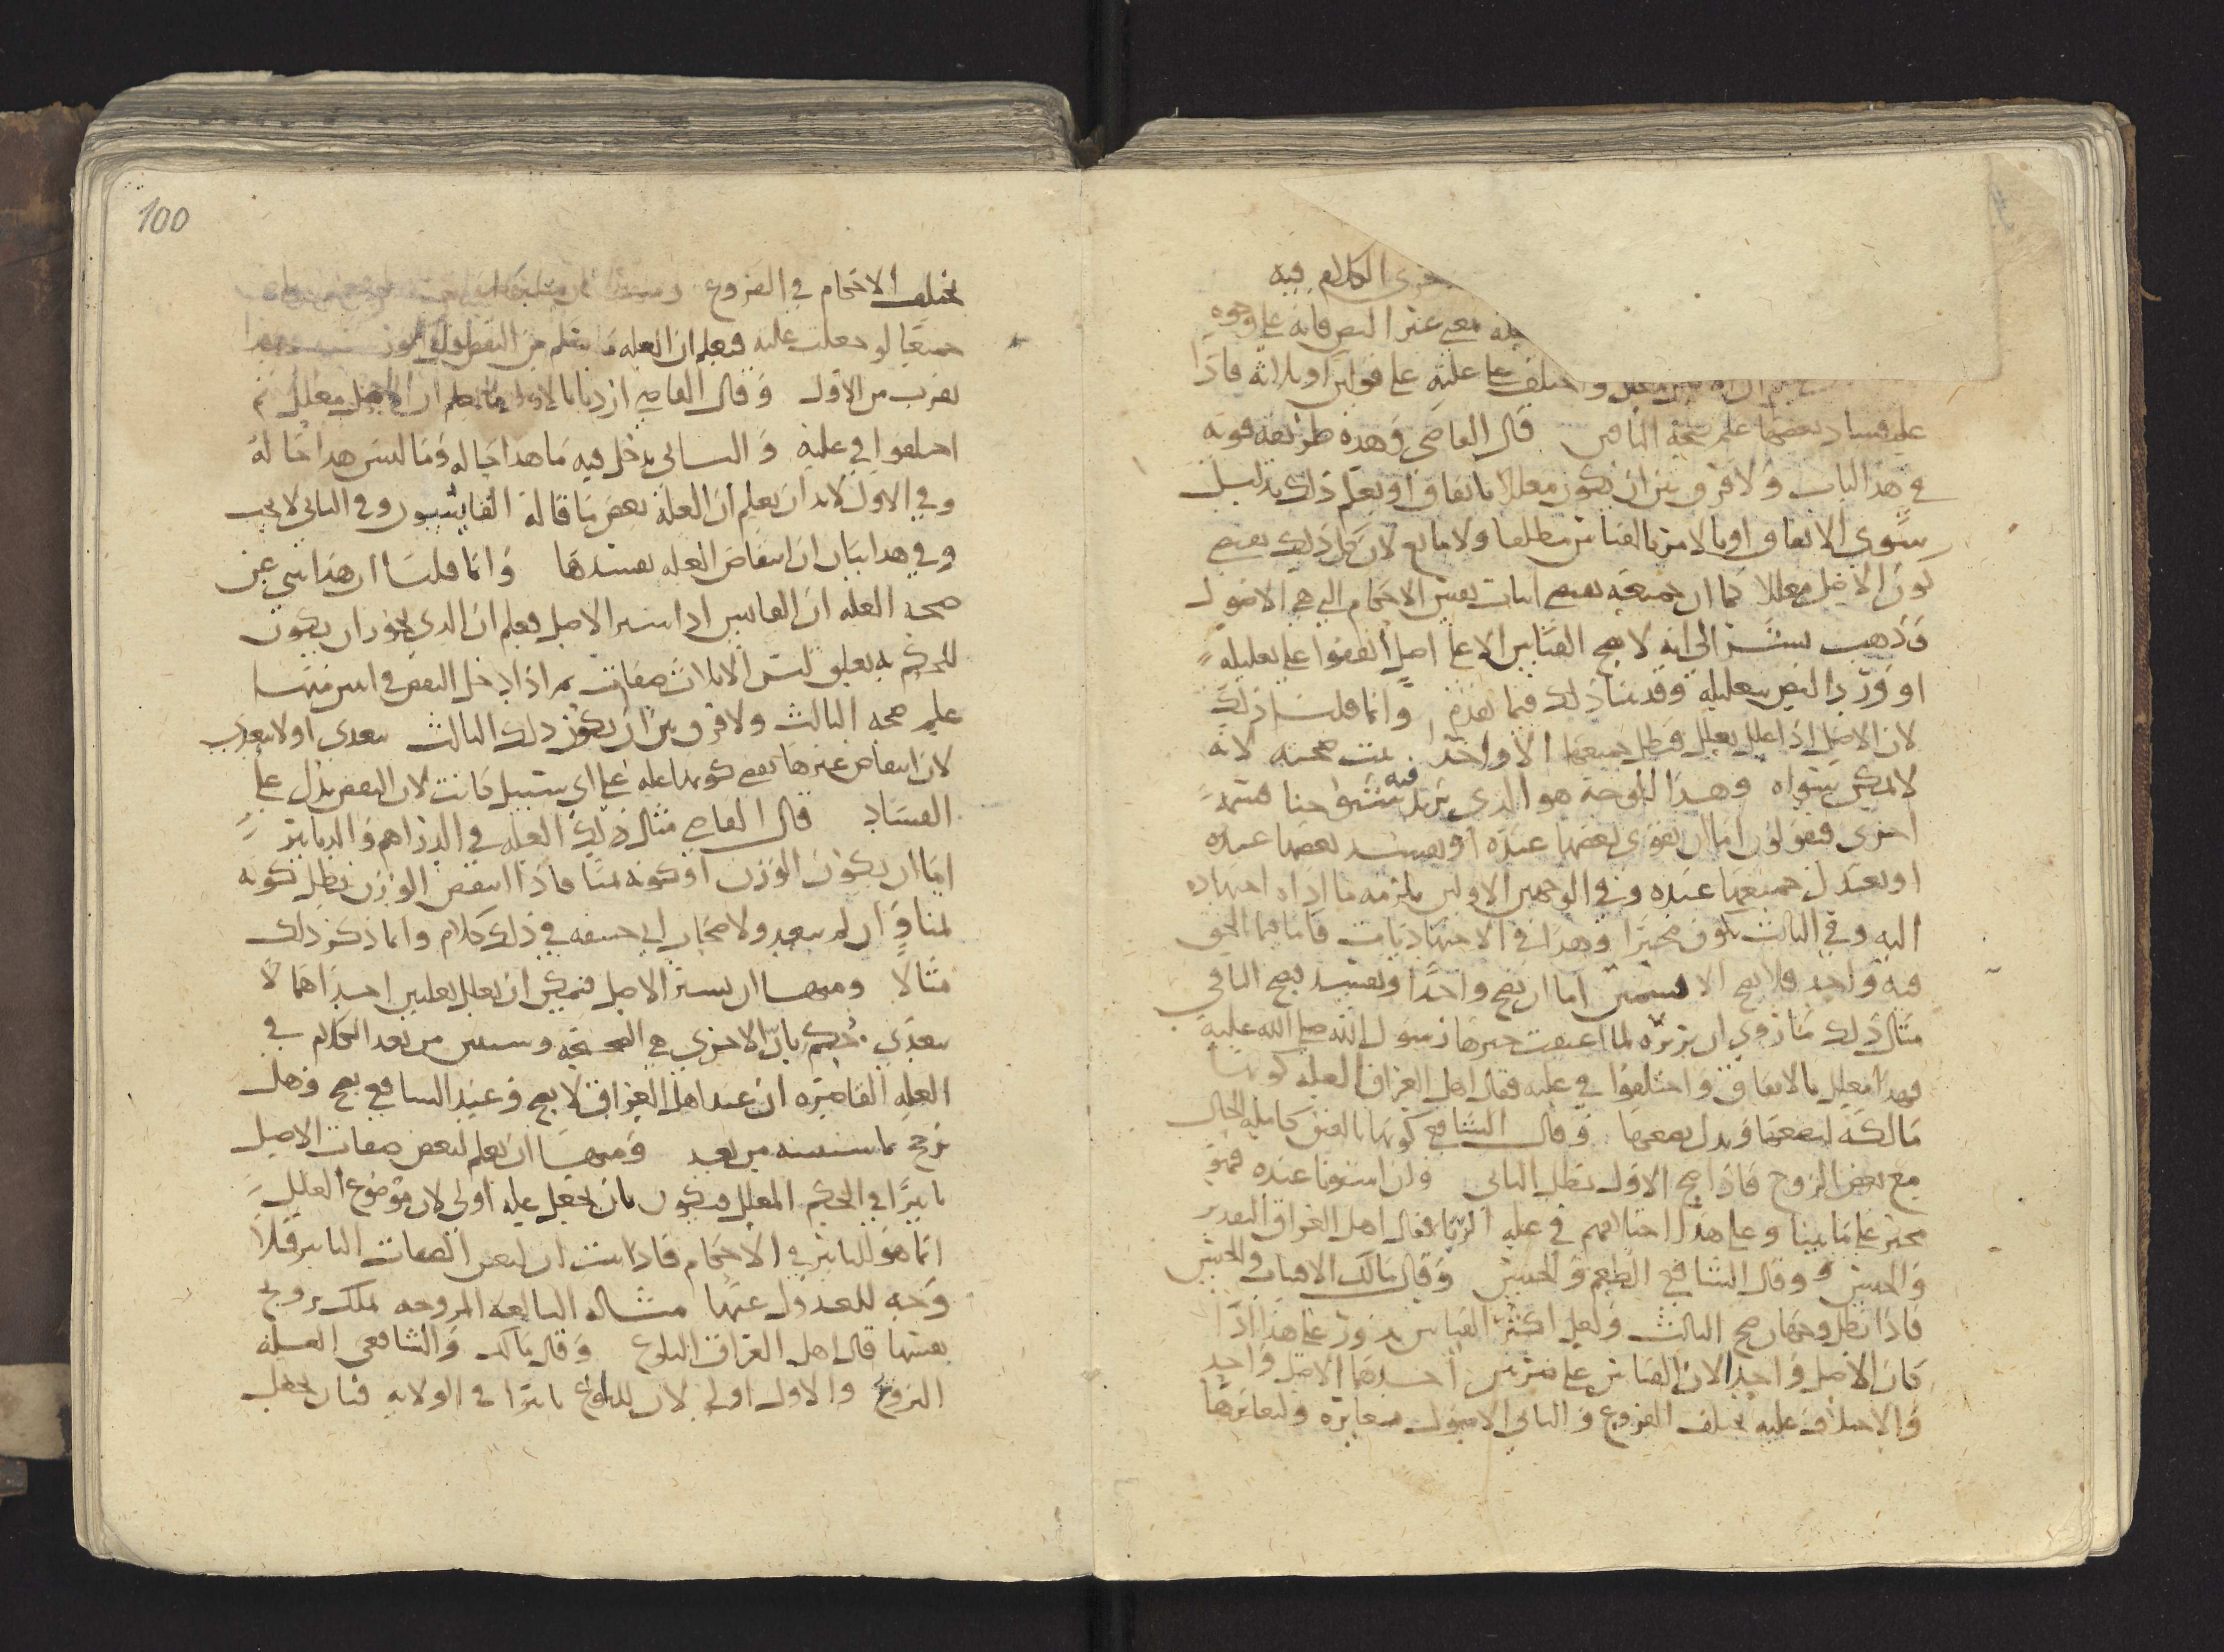 جرى الكلام فيه
علة يصح عند النص فانه على وجوه
واختلف على علته على قولين او ثلاثة فاذا
علم فساد بعضها علم صحة الباقي قال القاضي وهذه طريقة قوية
في هذا الباب ولا فرق بين ان يكون معللا باتفاق او يعلم ذلك بدليل
سوى الاتفاق او بالامر بالقياس مطلقا ولا مانع لان كل ذلك يقتضي
كون الاصل معللا كما ان جميعه يقتضي اثبات بعض الاحكام التي هي الاصول
وذهب بشر الى انه لا يصح القياس الا على اصل اتفقوا على تعليله
او ورد النص بتعليله وقد بينا ذلك فيما تقدم وانما قلنا ذلك
لان الاصل اذا علل بعلل فبطل جميعها الا واحدة ثبت صحته لانه
لا يمكن سواه وهذا الوجه هو الذي يذكر فيه شيوخنا قسمة
اخرى فيقولون اما ان يقوى بعضها عنده او يفسد بعضها عنده
او يعتدل جميعها عنده وفي الوجهين الاولين يلزمه ما اداه اجتهاده
اليه وفي الثالث يكون مخيرا وهذا في الاجتهاديات فاما فيما الحق
فيه واحد فلا يصح الا قسمين اما ان يصح واحدا ويفسد يصح الباقي
مثال ذلك ما روي ان بريرة لما اعتقت خيرها رسول الله صلى الله عليه
فهذا معلل بالاتفاق واختلفوا في علته فقال اهل العراق العلة كونها
مالكة لبضعها وبدل بضعها وقال الشافعي كونها بالعتق كاملة الحال
مع نقص الزوج فاذا صح الاول بطل الثاني وان استويا عنده فهو
مخير على ما بينا وعلى هذا اختلافهم في علة الربا فقال اهل العراق التقدير
والجنس وقال الشافعي الطعم والجنس وقال مالك الاقتيات والجنس
فاذا بطل وجهان صح الثالث ولعل اكثر القياس يدور على هذا اذا
كان الاصل واحدا لان القياس على ضربين احدهما الاصل واحد
والاختلاف عليه تختلف الفروع والثاني الاصول متغايرة ولتغايرها
100
تختلف الاحكام في الفروع
جميعا لو جعلت علته فيعلم ان العلة ما يسلم من النقض
يقرب من الاول وقال القاضي اردنا بالاول ما يعلم ان الاصل معلل ثم
اختلفوا في علته والثاني يدخل فيه ما هذا حاله وما ليس هذا حاله
وفي الاول لابد ان يعلم ان العلة بعض ما قاله القايسون وفي الثاني لا يجب
وفي هذا بيان ان انتقاض العلة يفسدها وانما قلنا ان هذا ينبي عن
صحة العلة ان القايس اذا سبر الاصل فعلم ان الذي يجوز ان يكون
للحكم به تعلق ليس الا ثلاث صفات ثم اذا دخل النقض في اثنين منها
علم صحة الثالث ولا فرق بين ان يكون ذلك الثالث يتعدى او لا يتعدى
لان انتقاض غيرها يقتضي كونها علة على اي سبيل كانت لان النقض يدل على
الفساد قال القاضي مثال ذلك العلة في الدراهم والدنانير
اما ان يكون الوزن او كونه ثمنا فاذا انتقض الوزن بطل كونه
ثمنا وان لم يتعد ولاصحاب ابي حنيفة في ذلك كلام وانما ذكر ذلك
مثالا ومنها ان يسبر الاصل فيمكن ان يعلل بعلتين احداهما لا
يتعدى فيحكم بان الاخرى هي الصحيحة وسنبين من بعد الكلام في
العلة القاصرة ان عند اهل العراق لا يصح وعند الشافعي يصح وهل
ترجح بما سنبينه من بعد ومنها ان يعلم لبعض صفات الاصل
تاثيرا في الحكم المعلل فيكون بان يجعل علة اولى لان موضوع العلل
انما هو للتاثير في الاحكام فاذا ثبت ان لبعض الصفات التاثير فلا
وجه للعدول عنها مثاله البالغة المزوجة تملك تزويج
نفسها قال اهل العراق البلوغ وقال مالك والشافعي العلة
التزويج والاول اولى لان للبلوغ تاثيرا في الولاية فبان يجعل